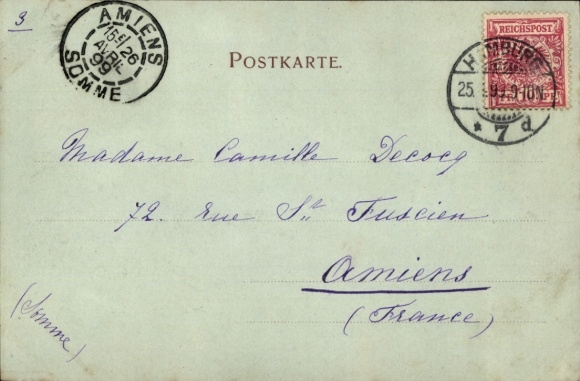 3
AMIENS
15E 26
AVRIL
99
SOMME
POSTKARTE.
REICHSPOST
HAMBURG
25. 99. 9-10N.
* 7 d
Madame Camille Decocq
72. rue St Fuscien
Amiens
(France)
(Somme)